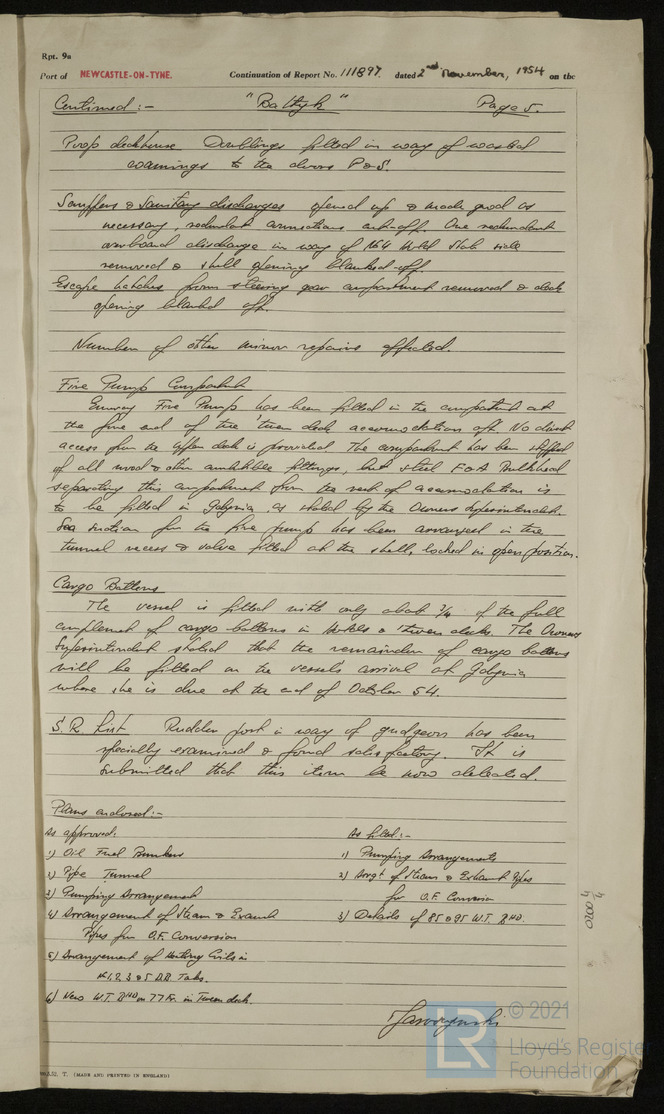 Rpt. 9a
Port of NEWCASTLE-ON-TYNE. Continuation of Report No. 111897 dated 2nd November, 1954 on the
Continued :- "Bałtyk" Page 5.
Poop deckhouse Doublings fitted in way of wasted
coamings to the doors P & S.
Scuppers & Sanitary discharges opened up & made good as
necessary, redundant connections cut-off. One redundant
overboard discharge in way of No 4 Hold Stbd side
removed & shell opening blanked-off.
Escape hatches from steering gear compartment removed & deck
opening blanked off.
Number of other minor repairs effected.
Fire Pump Compartment
Emergy Fire Pump has been fitted in the compartment at
the fore end of the 'tween deck accommodation aft. No direct
access from the upper deck is provided. The compartment has been stripped
of all wood & other combustible fittings, but steel F & A Bulkhead
separating this compartment from the rest of accommodation is
to be fitted in Gdynia, as stated by the Owners Superintendent.
Sea suction for the fire pump has been arranged in the
tunnel recess & valve fitted at the shell, locked in open position.
Cargo Battens
The vessel is fitted with only about 3/4 of the full
complement of cargo battens in Holds & 'tween decks. The Owners
Superintendent stated that the remainder of cargo battens
will be fitted on the vessel's arrival at Gdynia
where she is due at the end of October 54.
S.R. List Rudder post in way of gudgeons has been
specially examined & found satisfactory. It is
submitted that this item be now deleted.
Plans enclosed :-
As approved: As fitted :-
1) Oil Fuel Bunkers 1) Pumping Arrangements
2) Pipe Tunnel 2) Arrgt of Steam & Exhaust Pipes
for O.F. Conversion
3) Pumping Arrangement
4) Arrangement of Steam & Exhaust 3) Details of 85 & 95 W.T. BHD.
Pipes for O.F. Conversion
5) Arrangement of Heating Coils in
1, 2, 3 & 5 D.B. Tanks.
6) New W.T. BHD on 77 Fr. in Tween deck.
0200 4/4
© 2021
LR
Lloyd's Register
Foundation
T. (MADE AND PRINTED IN ENGLAND)